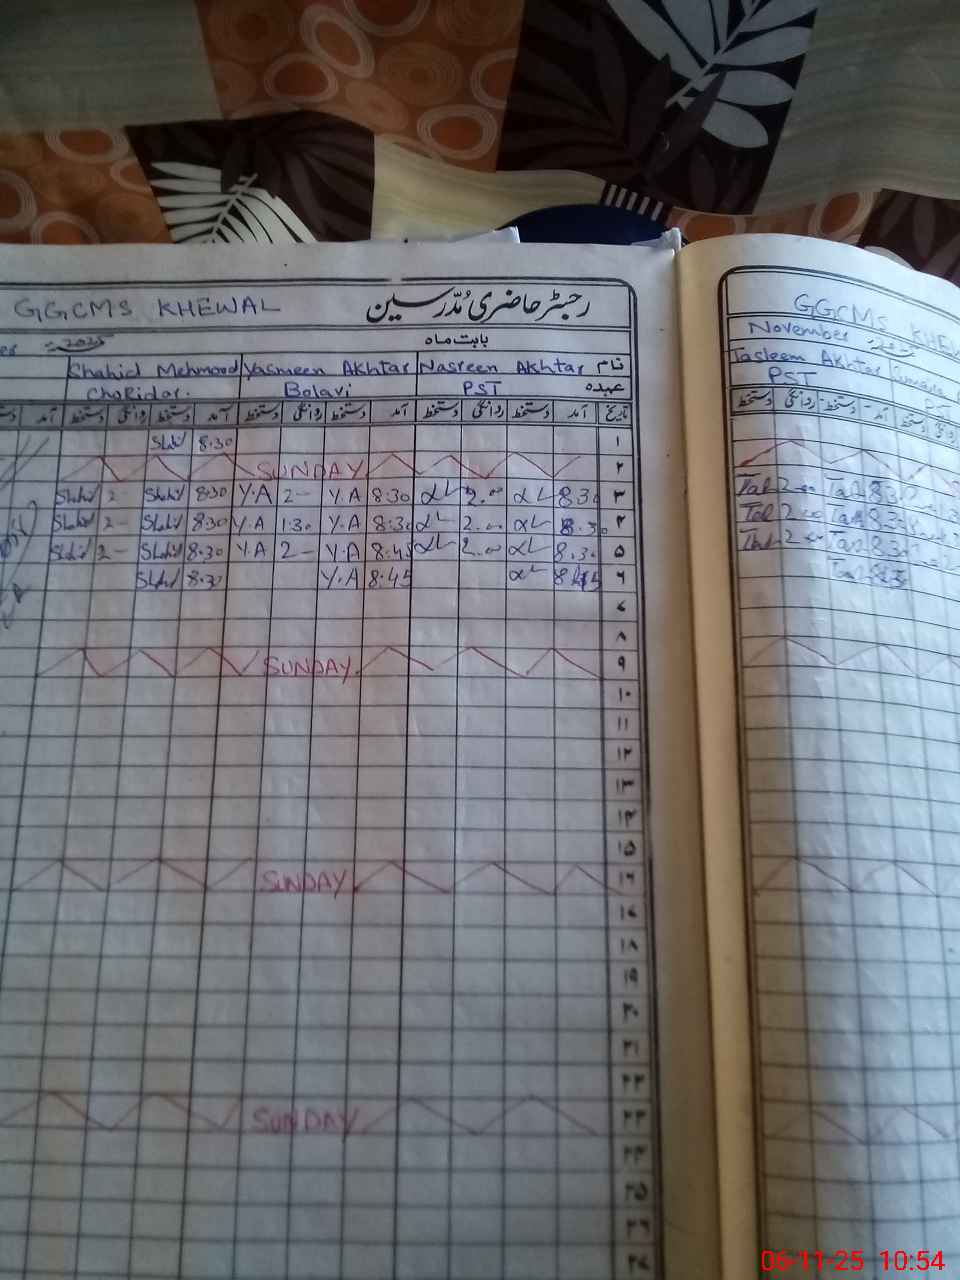 GGCMS KHEWAL رجسٹر حاضری مُدّرسین
2025 بابت ماہ
Shahid Mehmood Yasmeen Akhtar Nasreen Akhtar نام
Chokidar. Bolavi PST عہدہ
آمد دستخط روانگی دستخط آمد دستخط روانگی دستخط آمد دستخط روانگی دستخط آمد تاریخ
Shahid 8:30 ۱
SUNDAY ۲
Shahid 2- Shahid 8:30 Y.A 2- Y.A 8:30 2.00 8:30 ۳
Shahid 2- Shahid 8:30 Y.A 1:30 Y.A 8:30 2.00 8:30 ۴
Shahid 2- Shahid 8:30 Y.A 2- Y.A 8:45 2.00 8:30 ۵
Shahid 8:30 Y.A 8:45 8:45 ۶
۷
۸
SUNDAY. ۹
۱۰
۱۱
۱۲
۱۳
۱۴
۱۵
SUNDAY ۱۶
۱۷
۱۸
۱۹
۲۰
۲۱
۲۲
SUNDAY ۲۳
۲۴
۲۵
۲۶
۲۷
GGCMS KHEWAL
November
Tasleem Akhtar
PST PST
دستخط روانگی دستخط آمد دستخط روانگی
Tas 2.00 Tas 8:30
Tas 2.00 Tas 8:30
Tas 2.00 Tas 8:30
Tas 8:30
06-11-25 10:54